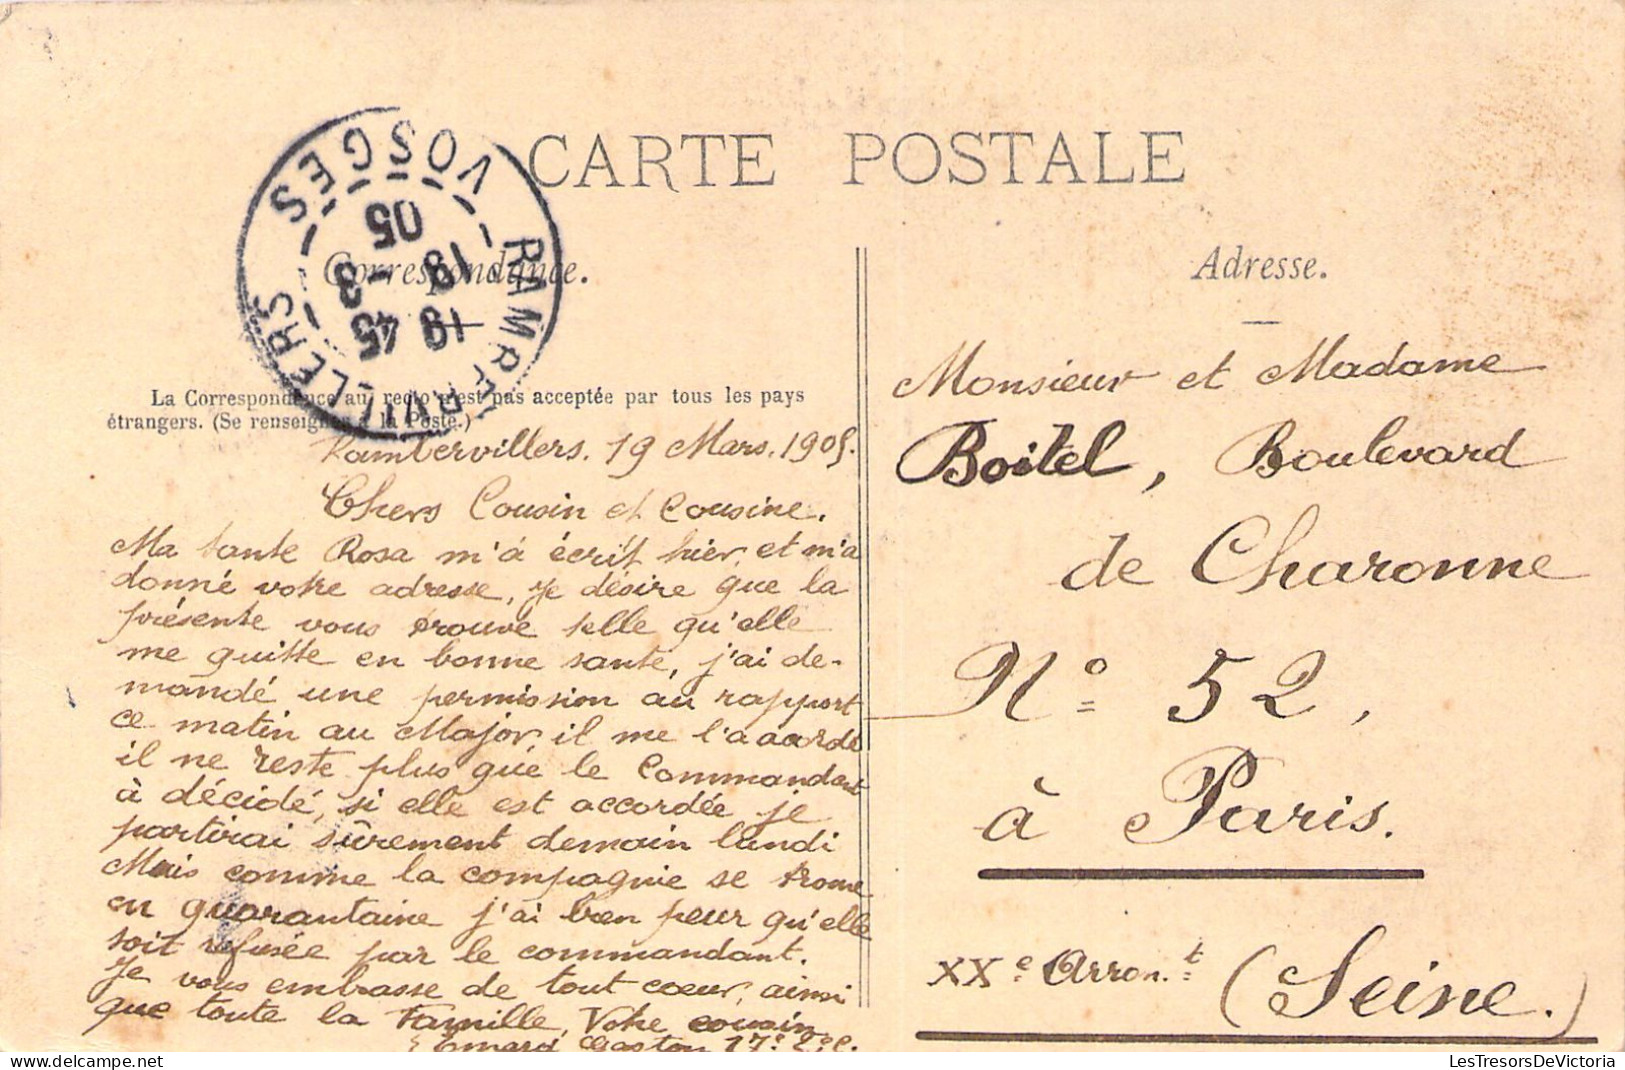 CARTE POSTALE
Correspondance.
Adresse.
RAMBERVILLERS
VOSGES
18 45
19 - 3
05
La Correspondance au recto n'est pas acceptée par tous les pays
étrangers. (Se renseigner à la Poste.)
Rambervillers. 19 Mars. 1905.
Chers Cousin et Cousine.
Ma tante Rosa m'à écrit hier, et m'a
donné votre adresse, je désire que la
présente vous trouve telle qu'elle
me quitte en bonne santé, j'ai de-
mandé une permission au rapport
ce matin au Major, il me l'a acordé
il ne reste plus que le Commandant
à décidé, si elle est accordée je
partirai sûrement demain lundi
Mais comme la compagnie se trouve
en quarantaine j'ai bien peur qu'elle
soit refusée par le commandant.
Je vous embrasse de tout coeur, ainsi
que toute la Famille, Votre cousin
Gaston 17e 2e C.
Monsieur et Madame
Boitel, Boulevard
de Charonne
N° 52,
à Paris.
XXe Arron.t (Seine.)
LesTresorsDeVictoria